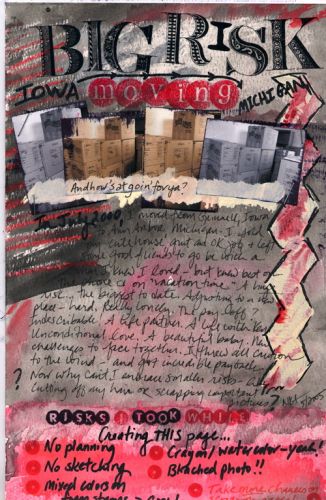 BIG RISK
IOWA moving MICHIGAN
And how's at goin' for ya?
2000, I moved from Grinnell, Iowa
to Ann Arbor, Michigan. I sold
cute house, quit an OK job & left
some good friends to go be with a
man I knew I loved - but knew best on
the phone or on "vacation time." A huge
risk... the biggest to date. Adjusting to a new
place - hard. Really lonely. The pay off?
Indescribable. A life partner. A life with
Unconditional love. A beautiful baby. New
challenges to face together. I threw all caution
to the wind - and got incredible payback.
? Now why can't I embrace smaller risks - like
cutting off my hair or scrapping important
pictures? 2005
RISKS I TOOK WHILE
Creating THIS page...
No planning
No sketching
Mixed colors on
foam stamps
Crayon/watercolor - yeah!
Bleached photo!!
Take more chances